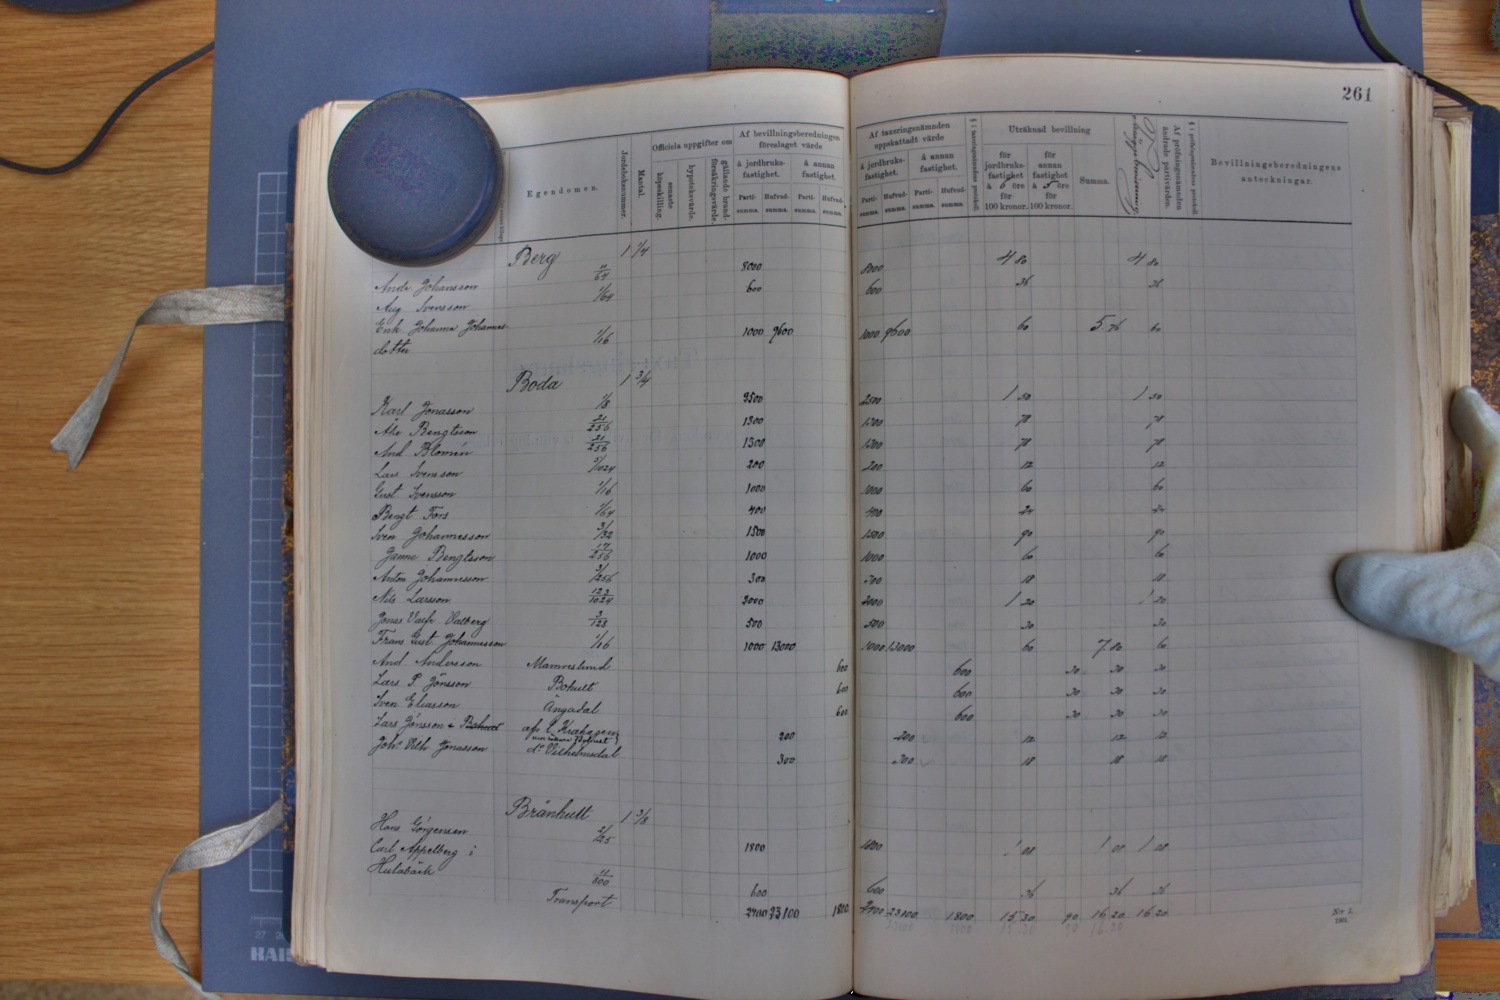 261
Egendomen.
Jordeboksnummer.
Mantal.
Officiela uppgifter om
senaste köpeskilling.
hypoteksvärde.
gällande brandförsäkringsvärde.
Af bevillningsberedningen föreslaget värde
å jordbruksfastighet.
å annan fastighet.
Parti-summa. Hufvud-summa. Parti-summa. Hufvud-summa.
Af taxeringsnämnden uppskattadt värde
å jordbruksfastighet.
å annan fastighet.
Parti-summa. Hufvud-summa. Parti-summa. Hufvud-summa.
§ i taxeringsnämndens protokoll.
Uträknad bevillning
för jordbruksfastighet à 6 öre för 100 kronor.
för annan fastighet à 5 öre för 100 kronor.
Summa.
Af pröfningsnämnden ändrade partivärden.
§ i pröfningsnämndens protokoll.
Bevillningsberedningens anteckningar.
Berg 1 1/4
Andr Johansson 11/64 8000 8000 4 80 4 80
Aug Svensson 1/64 600 600 36 36
Enk Johanna Johannes-
dotter 1/16 1000 9600 1000 9600 60 5 76 60
Boda 1 3/4
Karl Jonasson 1/8 2500 2500 1 50 1 50
Åke Bengtsson 21/256 1300 1300 78 78
And Blomén 21/256 1300 1300 78 78
Lars Svensson 5/1024 200 200 12 12
Gust Svensson 1/16 1000 1000 60 60
Bengt Fors 1/64 400 400 24 24
Sven Johannesson 3/32 1500 1500 90 90
Janne Bengtsson 17/256 1000 1000 60 60
Anton Johannesson 3/256 300 300 18 18
Nils Larsson 123/1024 2000 2000 1 20 1 20
Jonas Valberg 3/128 500 500 30 30
Frans Gust Johannesson 1/16 1000 13000 1000 13000 60 7 80 60
And. Andersson Mamreslund 600 600 30 30 30
Lars P. Jönsson Bohult 600 600 30 30 30
Sven Eliasson Ängadal 600 600 30 30 30
Lars Jönsson 200 200 12 12 12
Joh. Vilh Jonasson d:o Vilhelmsdal 300 300 18 18 18
Bränhult 1 3/8
Hans Görgensen 2/25 1800 1800 1 08 1 08 1 08
Carl Appelberg i
Hulabäck 11/600 600 600 36 36 36
Transport 2400 23100 1800 2400 23100 1800 15 30 90 16 20 16 20
23100 1800 15 30 90 16 20
Nr 1.